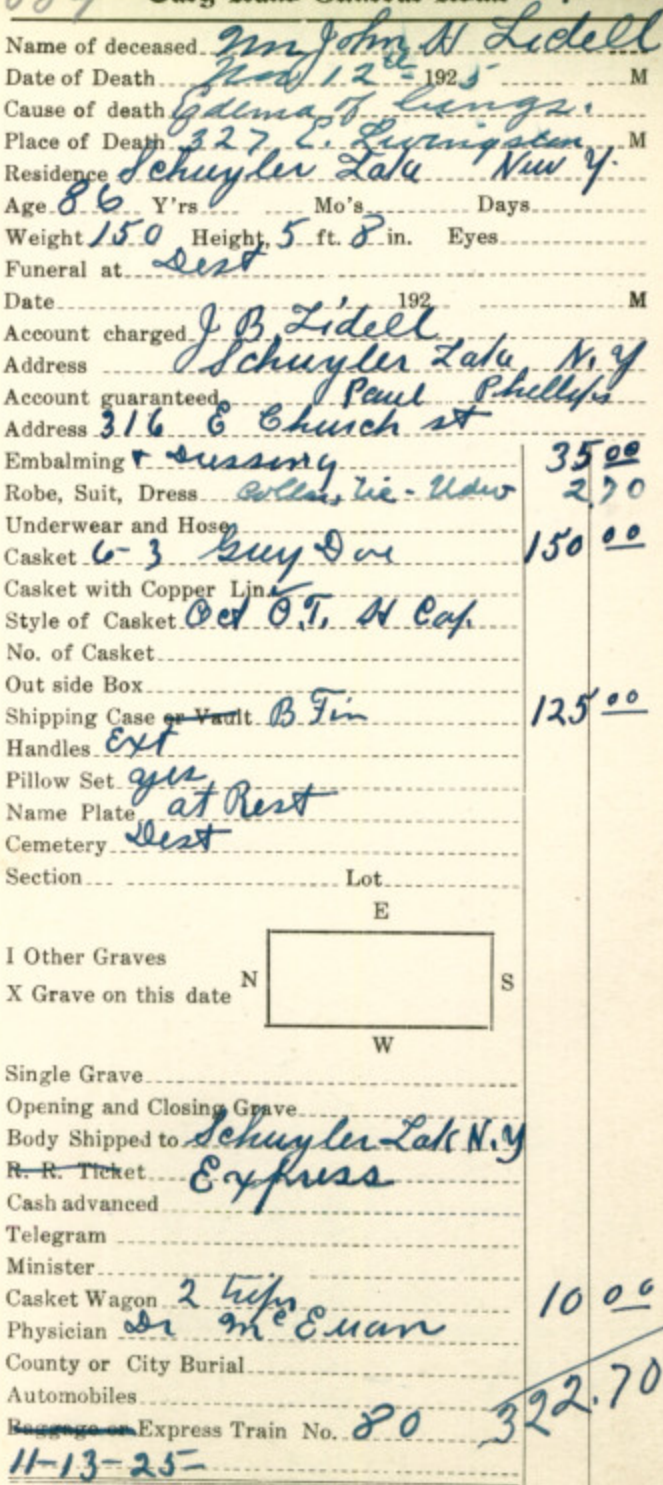 Name of deceased Mr John H Lidell
Date of Death Nov 12th 1925 M
Cause of death Edema of lungs.
Place of Death 327 E. Livingston M
Residence Schuyler Lake New Y.
Age 86 Y'rs Mo's Days
Weight 150 Height, 5 ft. 8 in. Eyes
Funeral at Dest
Date 192 M
Account charged J B Lidell
Address Schuyler Lake N.Y
Account guaranteed Paul Phillips
Address 316 E Church st
Embalming & Dressing 35 00
Robe, Suit, Dress Collar, Tie - Udw 2.70
Underwear and Hose
Casket 6-3 Grey Doe 150 00
Casket with Copper Lin.
Style of Casket Oct O.T. H Cap.
No. of Casket
Out side Box
Shipping Case or Vault B Fin 125 00
Handles Ext
Pillow Set yes
Name Plate at Rest
Cemetery Dest
Section Lot
E
I Other Graves
X Grave on this date N S
W
Single Grave
Opening and Closing Grave
Body Shipped to Schuyler Lak N.Y
R. R. Ticket Express
Cash advanced
Telegram
Minister
Casket Wagon 2 trips 10 00
Physician Dr McEuan
County or City Burial
Automobiles
Baggage or Express Train No. 80 322.70
11-13-25